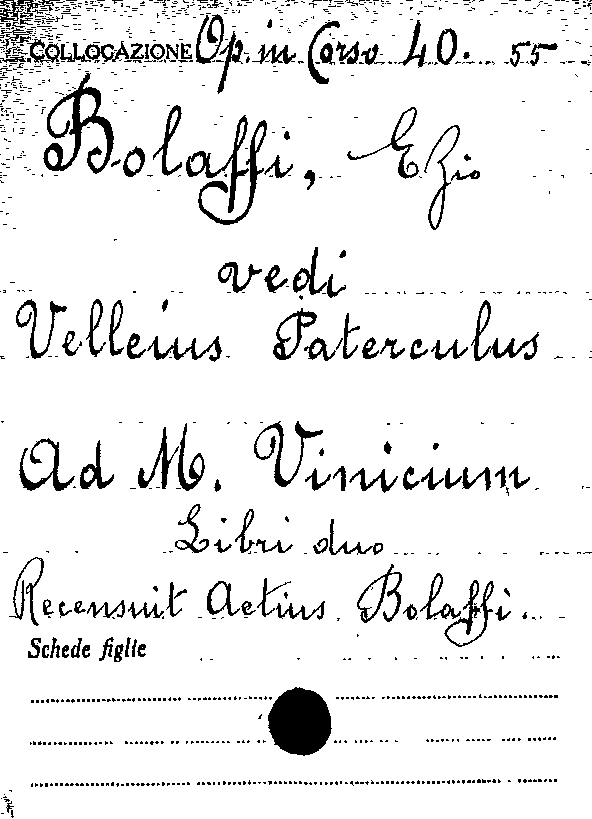 COLLOCAZIONE Op. in Corso 40. 55
Bolaffi, Ezio
vedi
Velleius Paterculus
Ad M. Vinicium
Libri duo
Recensuit Aetius Bolaffi.
Schede figlie